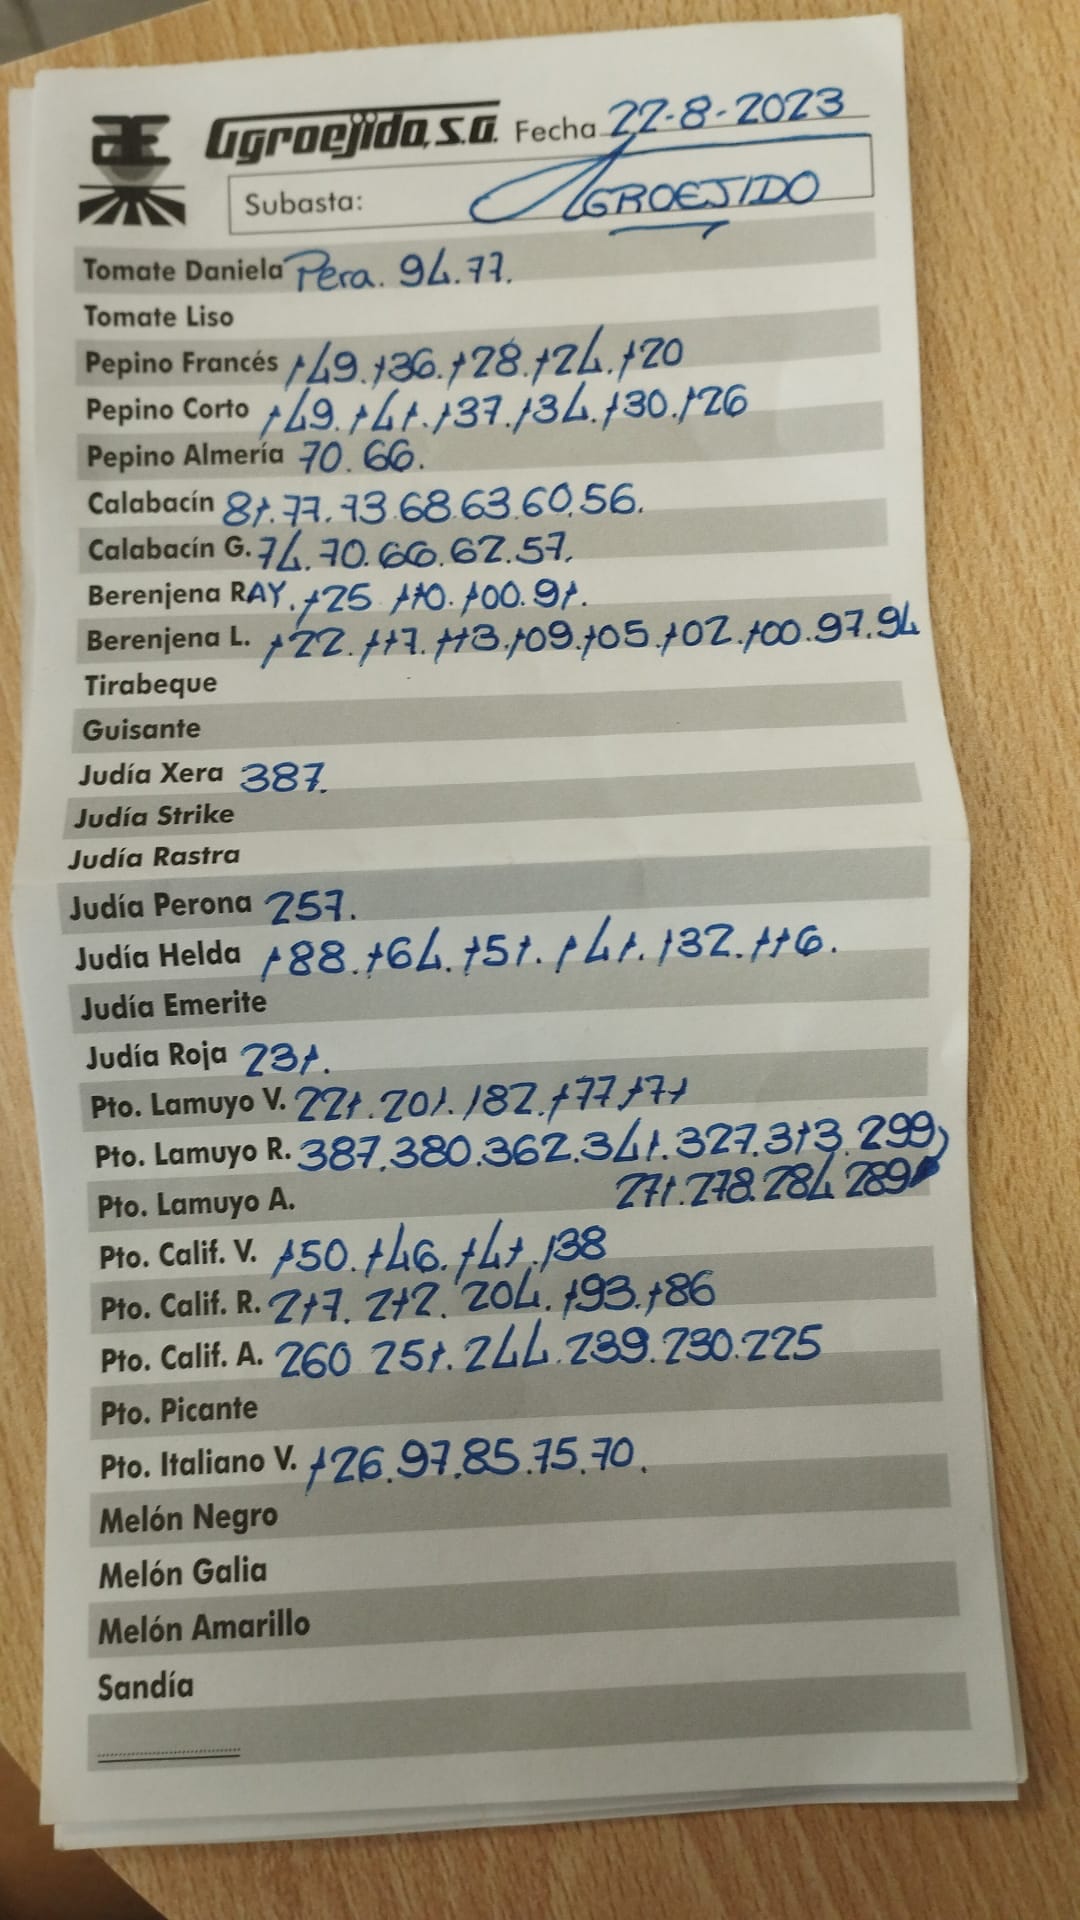 Agroejido, S.A. Fecha 22-8-2023
Subasta: AGROEJIDO
Tomate Daniela Pera. 94.77.
Tomate Liso
Pepino Francés 149.136.128.124.120
Pepino Corto 149.141.137.134.130.126
Pepino Almería 70.66.
Calabacín 81.77.73.68.63.60.56.
Calabacín G. 74.70.66.62.57.
Berenjena RAY. 125 110.100.91.
Berenjena L. 122.117.113.109.105.102.100.97.94
Tirabeque
Guisante
Judía Xera 387.
Judía Strike
Judía Rastra
Judía Perona 257.
Judía Helda 188.164.151.141.132.116.
Judía Emerite
Judía Roja 231.
Pto. Lamuyo V. 221.201.182.177.171
Pto. Lamuyo R. 387.380.362.341.327.313.299
Pto. Lamuyo A. 271.278.284.289
Pto. Calif. V. 150.146.141.138
Pto. Calif. R. 217.212.204.193.186
Pto. Calif. A. 260 251.244.239.230.225
Pto. Picante
Pto. Italiano V. 126.97.85.75.70.
Melón Negro
Melón Galia
Melón Amarillo
Sandía